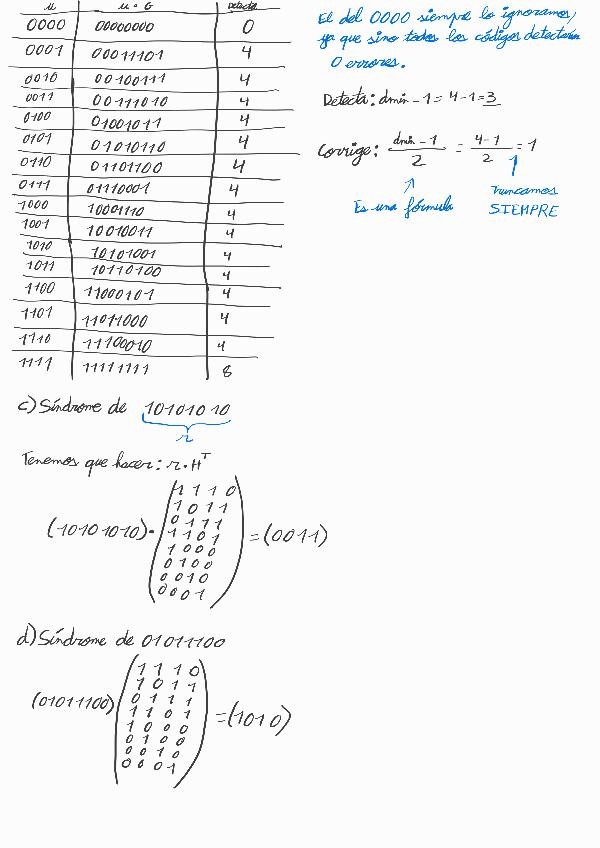 u u·G Detecta
0000 00000000 0
0001 00011101 4
0010 00100111 4
0011 00111010 4
0100 01001011 4
0101 01010110 4
0110 01101100 4
0111 01110001 4
1000 10001110 4
1001 10010011 4
1010 10101001 4
1011 10110100 4
1100 11000101 4
1101 11011000 4
1110 11100010 4
1111 11111111 8
El del 0000 siempre lo ignoramos,
ya que sino todos los códigos detectarían
0 errores.
Detecta: dmin - 1 = 4 - 1 = 3
Corrige: dmin - 1 / 2 = 4 - 1 / 2 = 1
Es una fórmula
truncamos
SIEMPRE
c) Síndrome de 10101010
r
Tenemos que hacer: r · H^T
1 1 1 0
1 0 1 1
0 1 1 1
(10101010) · 1 1 0 1 = (0011)
1 0 0 0
0 1 0 0
0 0 1 0
0 0 0 1
d) Síndrome de 01011100
1 1 1 0
1 0 1 1
(01011100) 0 1 1 1
1 1 0 1 = (1010)
1 0 0 0
0 1 0 0
0 0 1 0
0 0 0 1